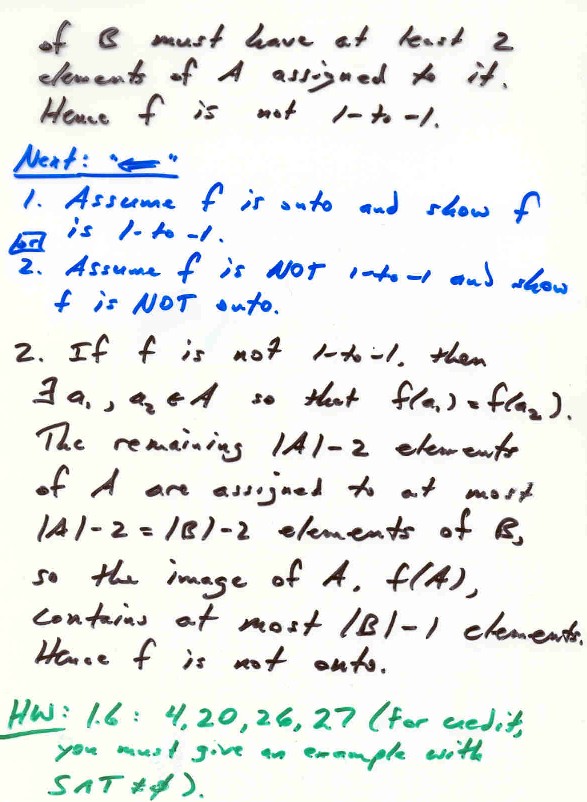 of B must have at least 2
elements of A assigned to it.
Hence f is not 1-to-1.
Next: "⇐"
1. Assume f is onto and show f
is 1-to-1.
or
2. Assume f is NOT 1-to-1 and show
f is NOT onto.
2. If f is not 1-to-1, then
∃ a₁, a₂ ∈ A so that f(a₁) = f(a₂).
The remaining |A|-2 elements
of A are assigned to at most
|A|-2 = |B|-2 elements of B,
so the image of A, f(A),
contains at most |B|-1 elements.
Hence f is not onto.
HW: 1.6: 4, 20, 26, 27 (for credit,
you must give an example with
S∩T ≠ ∅).